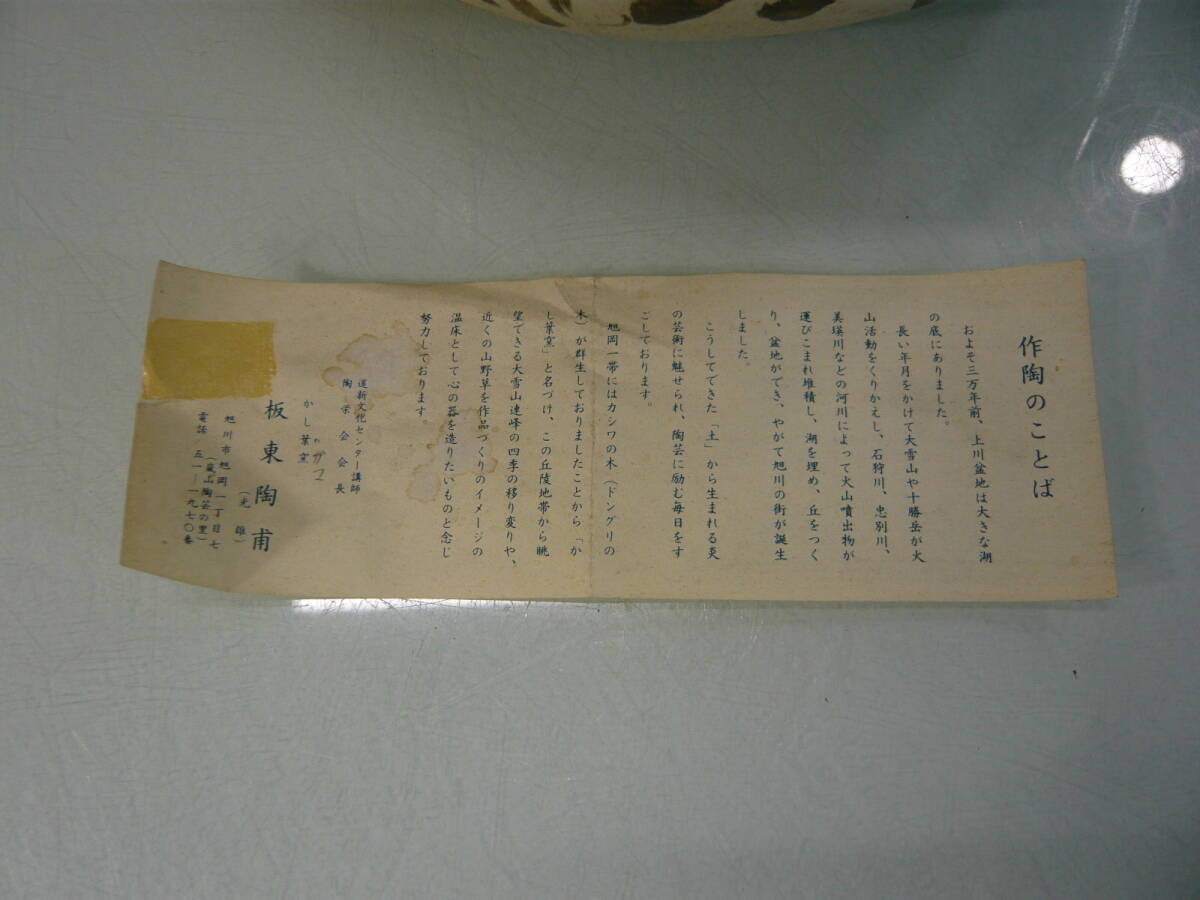 作陶のことば
およそ三万年前、上川盆地は大きな湖
の底にありました。
長い年月をかけて大雪山や十勝岳が火
山活動をくりかえし、石狩川、忠別川、
美瑛川などの河川によって火山噴出物が
運びこまれ堆積し、湖を埋め、丘をつく
り、盆地ができ、やがて旭川の街が誕生
しました。
こうしてできた「土」から生まれる炎
の芸術に魅せられ、陶芸に励む毎日をす
ごしております。
旭岡一帯にはカシワの木（ドングリの
木）が群生しておりましたことから「か
し葉窯」と名づけ、この丘陵地帯から眺
望できる大雪山連峰の四季の移り変りや、
近くの山野草を作品づくりのイメージの
温床として心の器を造りたいものと念じ
努力しております。
道新文化センター講師
陶栄会会長
かし葉窯
板東陶甫
（光雄）
旭川市旭岡一丁目七
（嵐山陶芸の里）
電話 五一―一九七〇番